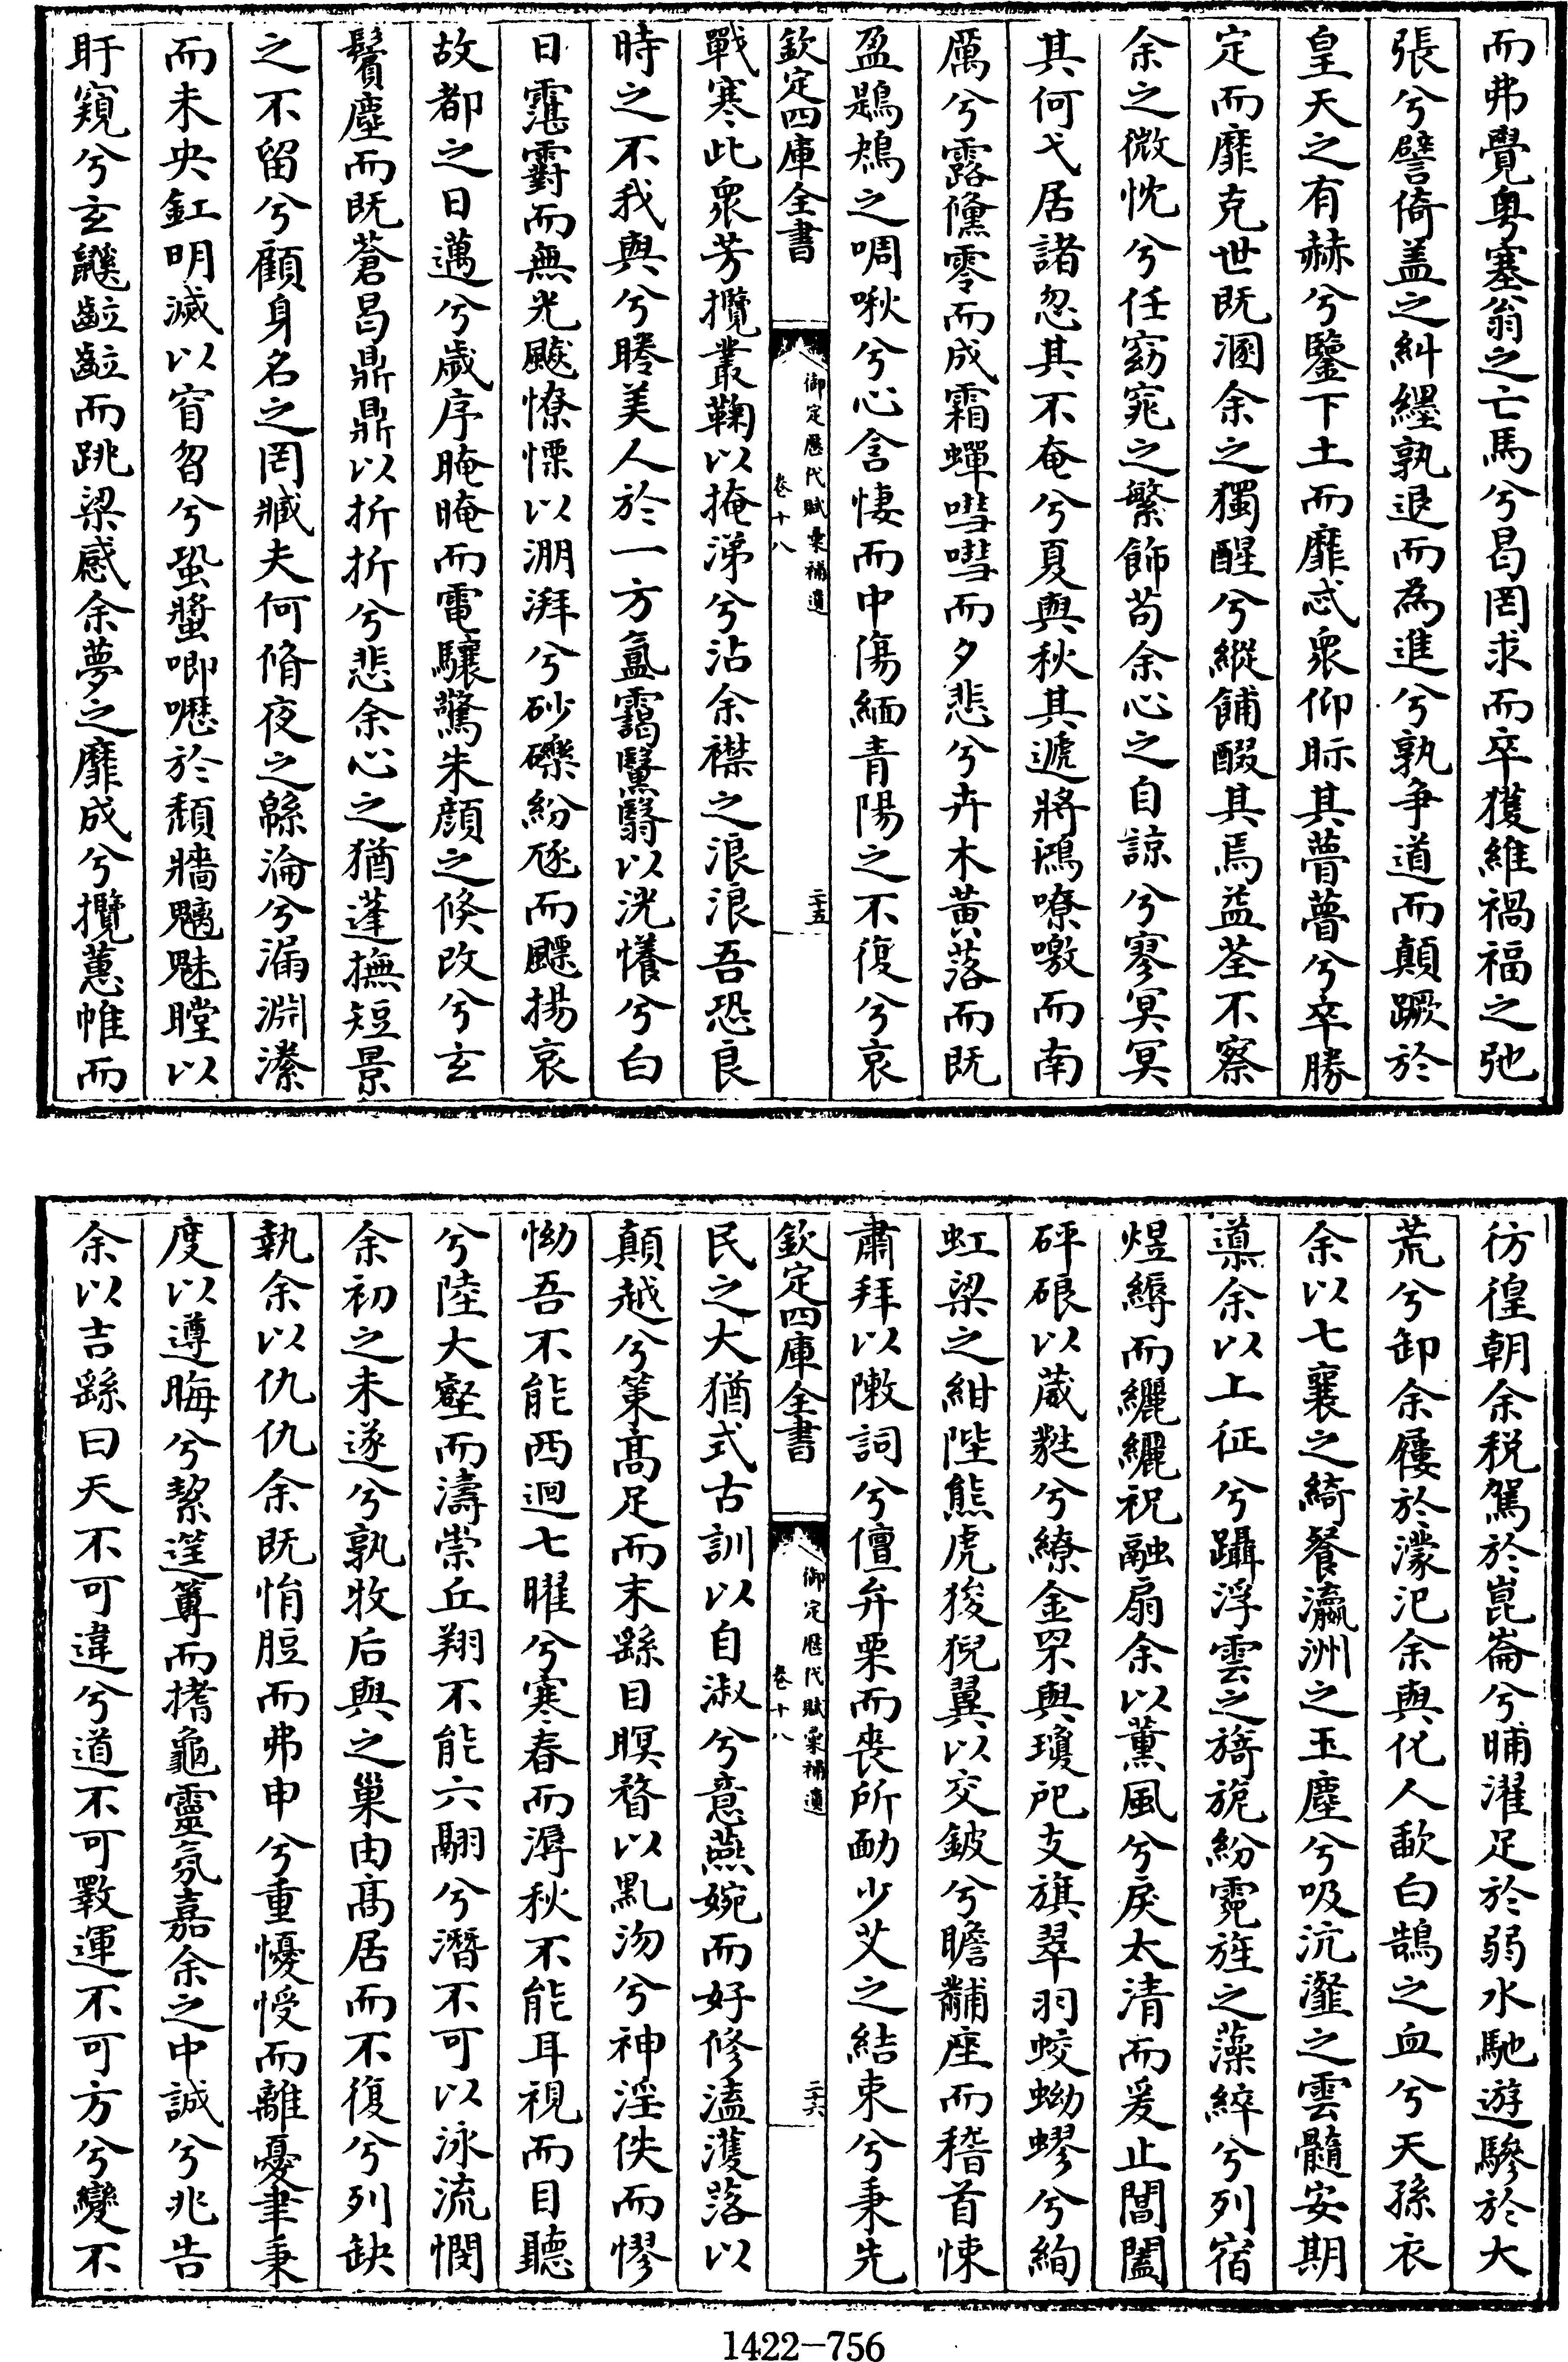 而弗覺粵塞翁之亡馬兮曷罔求而卒獲維禍福之弛
張兮譬倚盖之糾纆孰退而為進兮孰争道而顛蹶於
皇天之有赫兮鑒下土而靡忒衆仰眎其瞢瞢兮卒勝
定而靡克世既溷余之獨醒兮縱餔醊其焉益荃不察
余之微忱兮任窈窕之繁飾苟余心之自諒兮寥冥冥
其何弋居諸忽其不奄兮夏與秋其遞將鴻嘹噭而南
厲兮露儵零而成霜蟬嘒嘒而夕悲兮卉木黃落而既
盈鶗鴂之啁啾兮心含悽而中傷緬青陽之不復兮哀
欽定四庫全書
御定歷代賦彙補遺
卷十八
二十五
戰寒此衆芳攬叢鞠以掩涕兮沾余襟之浪浪吾恐良
時之不我與兮睠美人於一方氳靄黳翳以洸懩兮白
日霮䨴而無光飈憭慄以淜湃兮砂礫紛瓸而飃揚哀
故都之日邁兮歲序晻晻而電驤驚朱顔之倏改兮玄
鬢塵而既蒼曷鼎鼎以折折兮悲余心之猶蓬撫短景
之不留兮顧身名之罔臧夫何脩夜之緜淪兮漏淵潫
而未央釭明滅以窅曶兮蛩螿唧嚦於頹牆魑魅瞠以
盱窺兮玄鼷齟齟而跳梁感余夢之靡成兮攬蕙帷而
彷徨朝余税駕於崑崙兮晡濯足於弱水馳遊驂於大
荒兮卸余屨於濛汜余與化人歃白鵠之血兮天孫衣
余以七襄之綺餐瀛洲之玉塵兮吸沆瀣之雲髓安期
導余以上征兮躡浮雲之旖旎紛霓旌之藻綷兮列宿
煜縟而纚纚祝融扇余以薰風兮戾太清而爰止閶闔
砰硠以葳蕤兮繚金罘與瓊戺支旗翠羽蛟蚴蟉兮絢
虹梁之紺陛熊虎狻猊翼以交鈹兮瞻黼座而稽首悚
肅拜以敶詞兮儃弁栗而喪所勔少艾之結束兮秉先
欽定四庫全書
御定歷代賦彙補遺
卷十八
二十六
民之大猶式古訓以自淑兮意燕婉而好修溘濩落以
顛越兮策高足而末繇目瞑瞀以亂沕兮神淫佚而㦖
怮吾不能西迴七曜兮寒春而潯秋不能耳視而目聽
兮陸大壑而濤崇丘翔不能六翮兮潛不可以泳流憫
余初之未遂兮孰牧后與之巢由髙居而不復兮列缺
執余以仇仇余既悁脰而弗申兮重懮慢而離憂聿秉
度以遵晦兮絜筵篿而揩龜靈氛嘉余之中誠兮兆告
余以吉繇曰天不可違兮道不可斁運不可方兮變不
1422—756